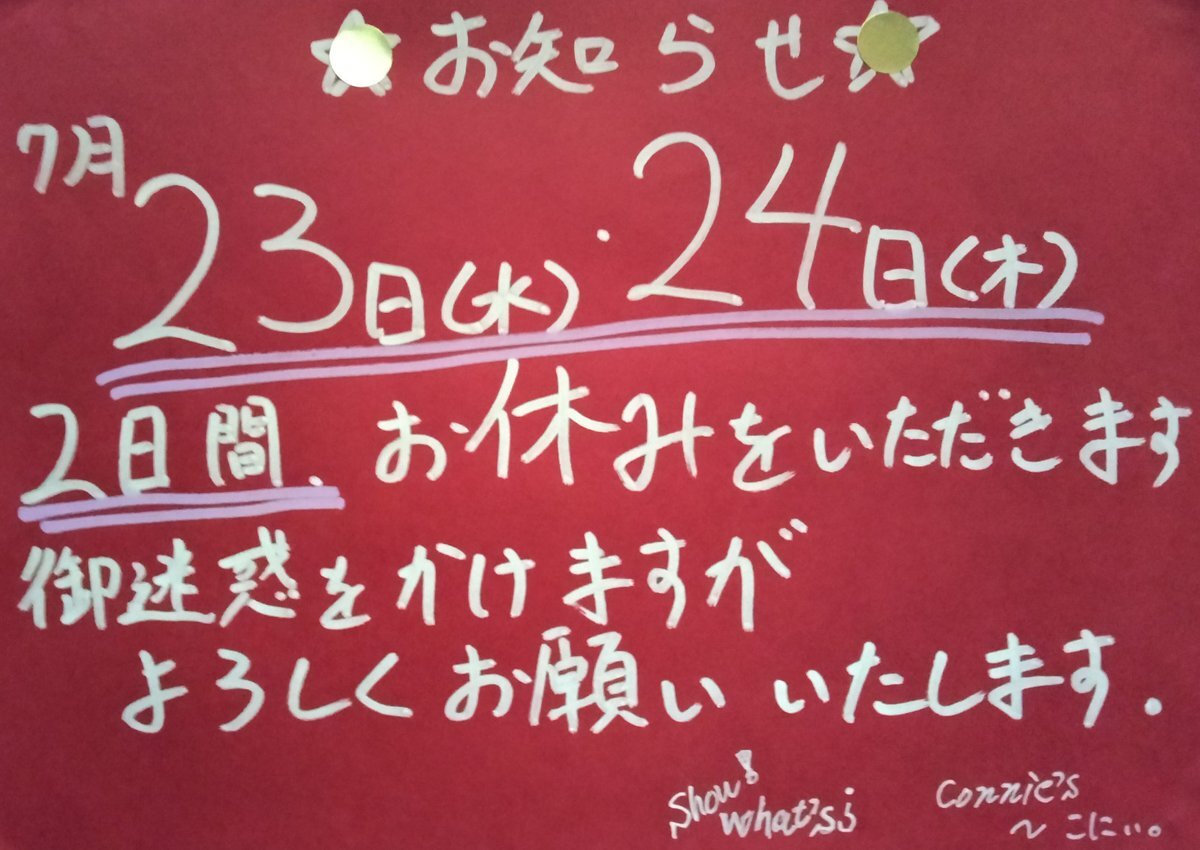 ☆お知らせ☆
7月23日(水)・24日(木)
2日間、お休みをいただきます
御迷惑をかけますが
よろしくお願いいたします.
Show! what's
Connie's
〜こにぃ。